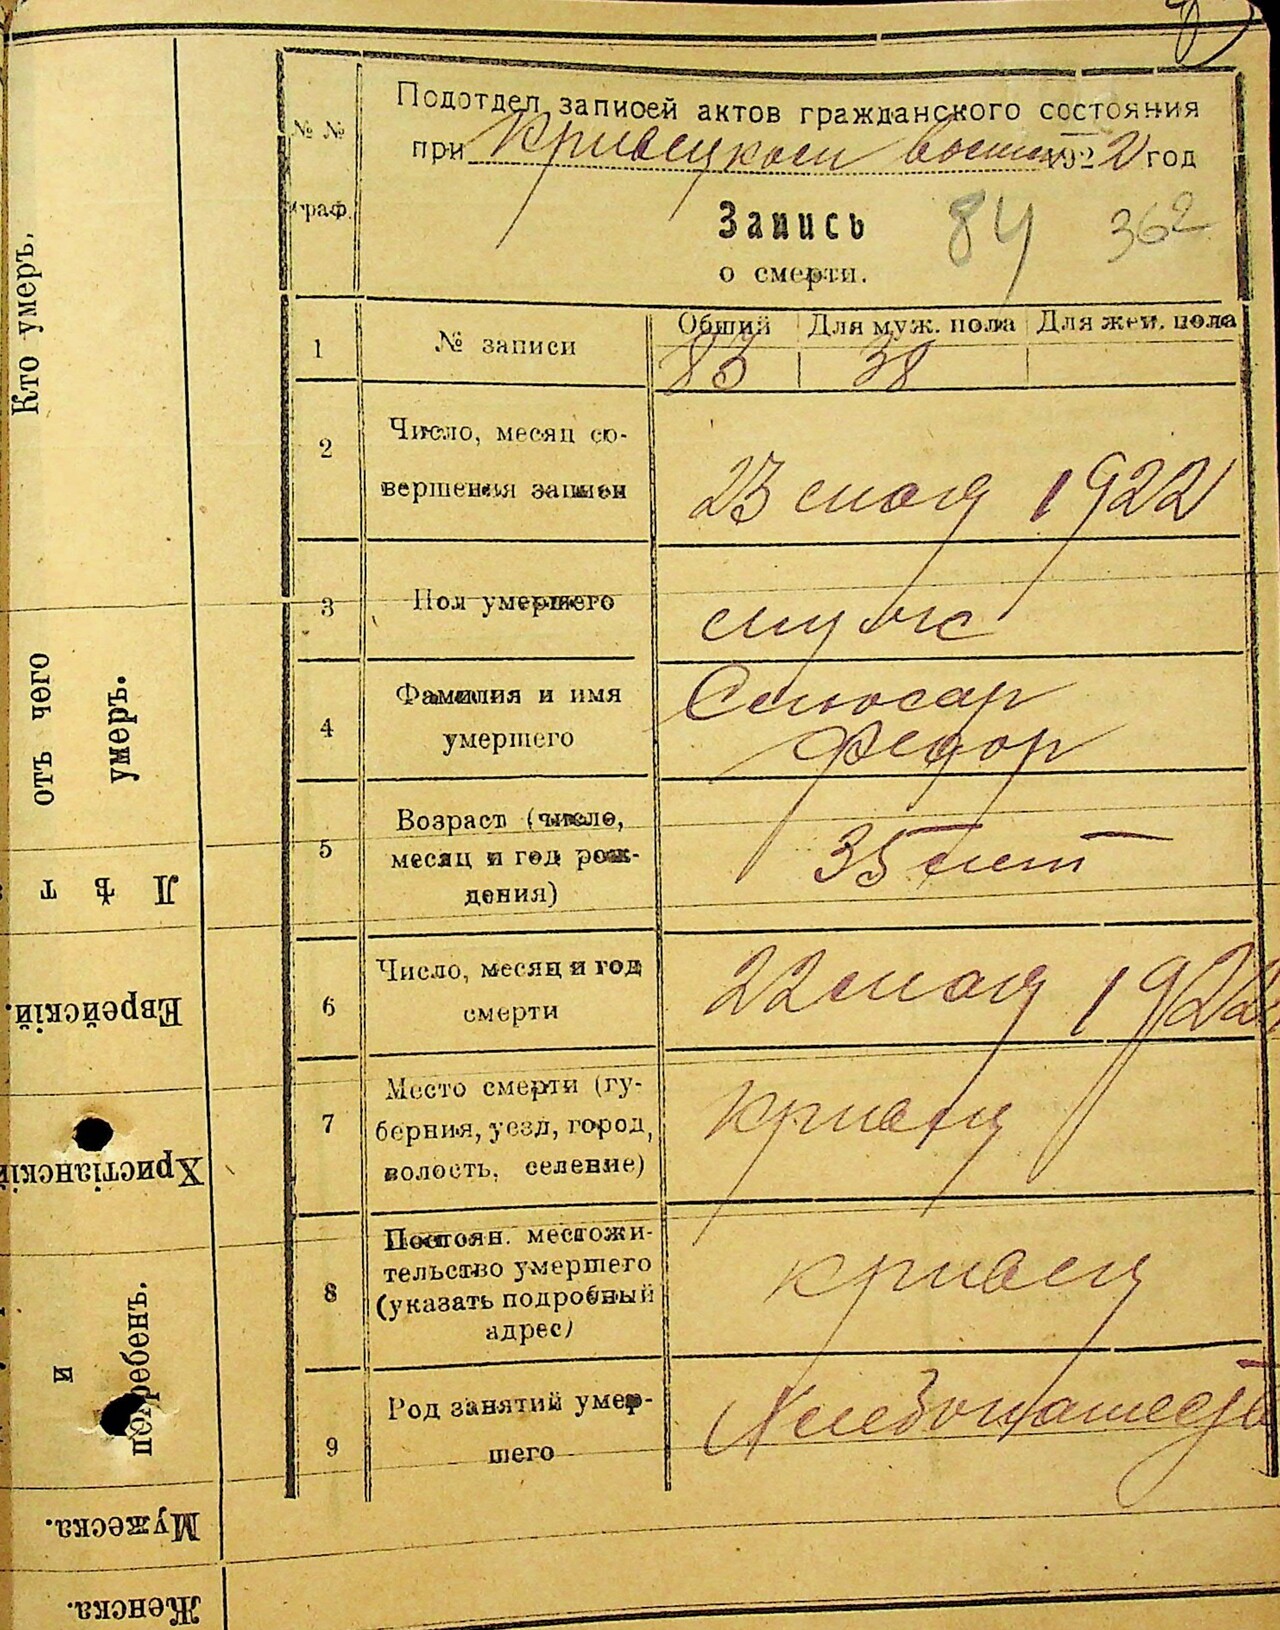 Подотдел записей актов гражданского состояния
при Кривецком 1922 год
№ № граф.
Запись 84 362
о смерти.
1 № записи Общий Для муж. пола Для жен. пола
83 38
2 Число, месяц со-
вершения записи 23 мая 1922
3 Пол умершего муж
4 Фамилия и имя Слюсар
умершего Федор
5 Возраст (число,
месяц и год рож- 35 лет
дения)
6 Число, месяц и год 22 мая 1922
смерти
7 Место смерти (гу-
берния, уезд, город, Кривец
волость, селение)
8 Постоян. местожи-
тельство умершего Кривец
(указать подробный
адрес)
9 Род занятий умер- Хлебопашество
шего
Кто умеръ,
отъ чего
умеръ.
Лѣт
Еврейскій.
Христіанскій
и
погребенъ.
Мужеска.
Женска.